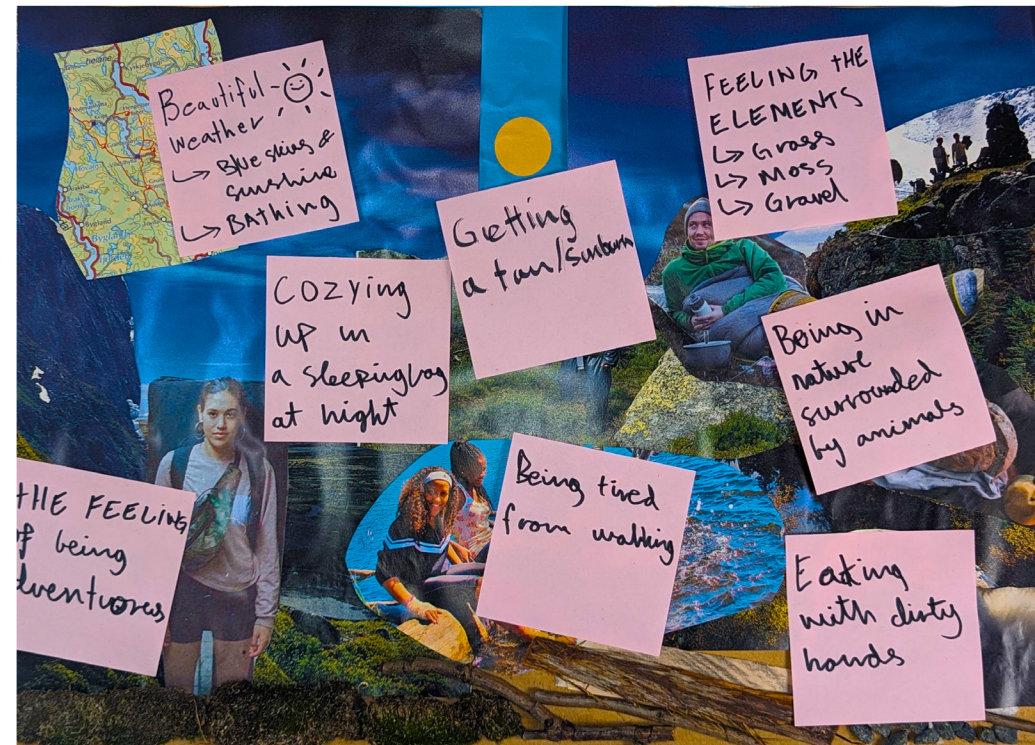 Beautiful
weather
↳ Blue skies &
sunshine
↳ BAthing
FEELING tHE
ELEMENTS
↳ Grass
↳ Moss
↳ Gravel
Getting
a tan/sunburn
COZYING
UP in
a sleepingbag
at night
Being in
nature
surrouded
by animals
tHE FEELING
of being
dventuorous
Being tired
from walking
Eating
with dirty
hands
Bygland